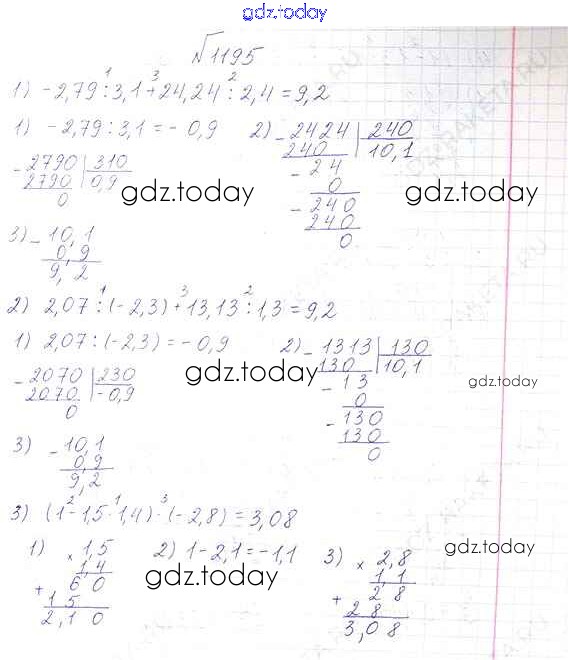 gdz.today
√1195
1) -2,79 : 3,1 + 24,24 : 2,4 = 9,2
1) -2,79 : 3,1 = -0,9 2) 2424 | 240
240 10,1
- 2790 | 310 - 24
2790 0,9 0
0 - 240
240
0
gdz.today gdz.today
3) - 10,1
0,9
9,2
2) 2,07 : (-2,3) + 13,13 : 1,3 = 9,2
1) 2,07 : (-2,3) = -0,9 2) - 1313 | 130
130 10,1
- 2070 | 230 - 13
2070 -0,9 0
0 - 130
130
0
gdz.today gdz.today
3) - 10,1
0,9
9,2
3) (1 - 1,5 · 1,4) · (-2,8) = 3,08
1) × 1,5 2) 1 - 2,1 = -1,1 3) × 2,8
1,4 1,1
+ 60 28
15 + 28
2,10 3,08
gdz.today gdz.today